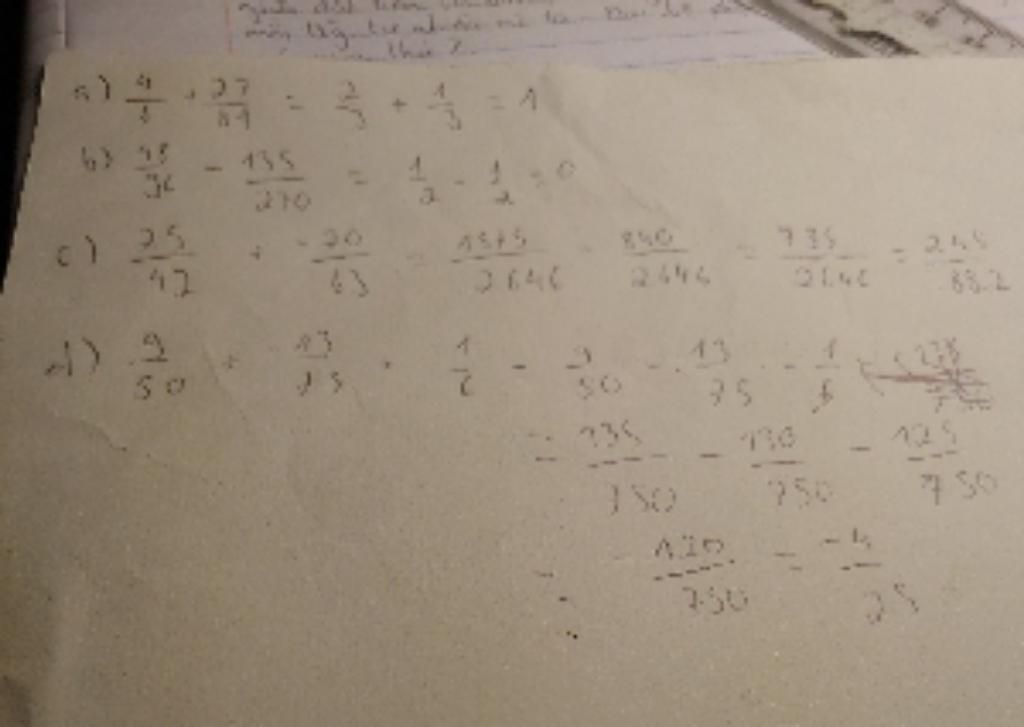 a) 4/6 + 27/81 = 2/3 + 1/3 = 1
b) 48/96 - 135/270 = 1/2 - 1/2 = 0
c) 25/42 + -20/63 = 1575/2646 - 840/2646 = 735/2646 = 245/882
d) 9/50 + -13/75 + -1/6 = 9/50 - 13/75 - 1/6
= 135/750 - 130/750 - 125/750
= -120/750 = -4/25